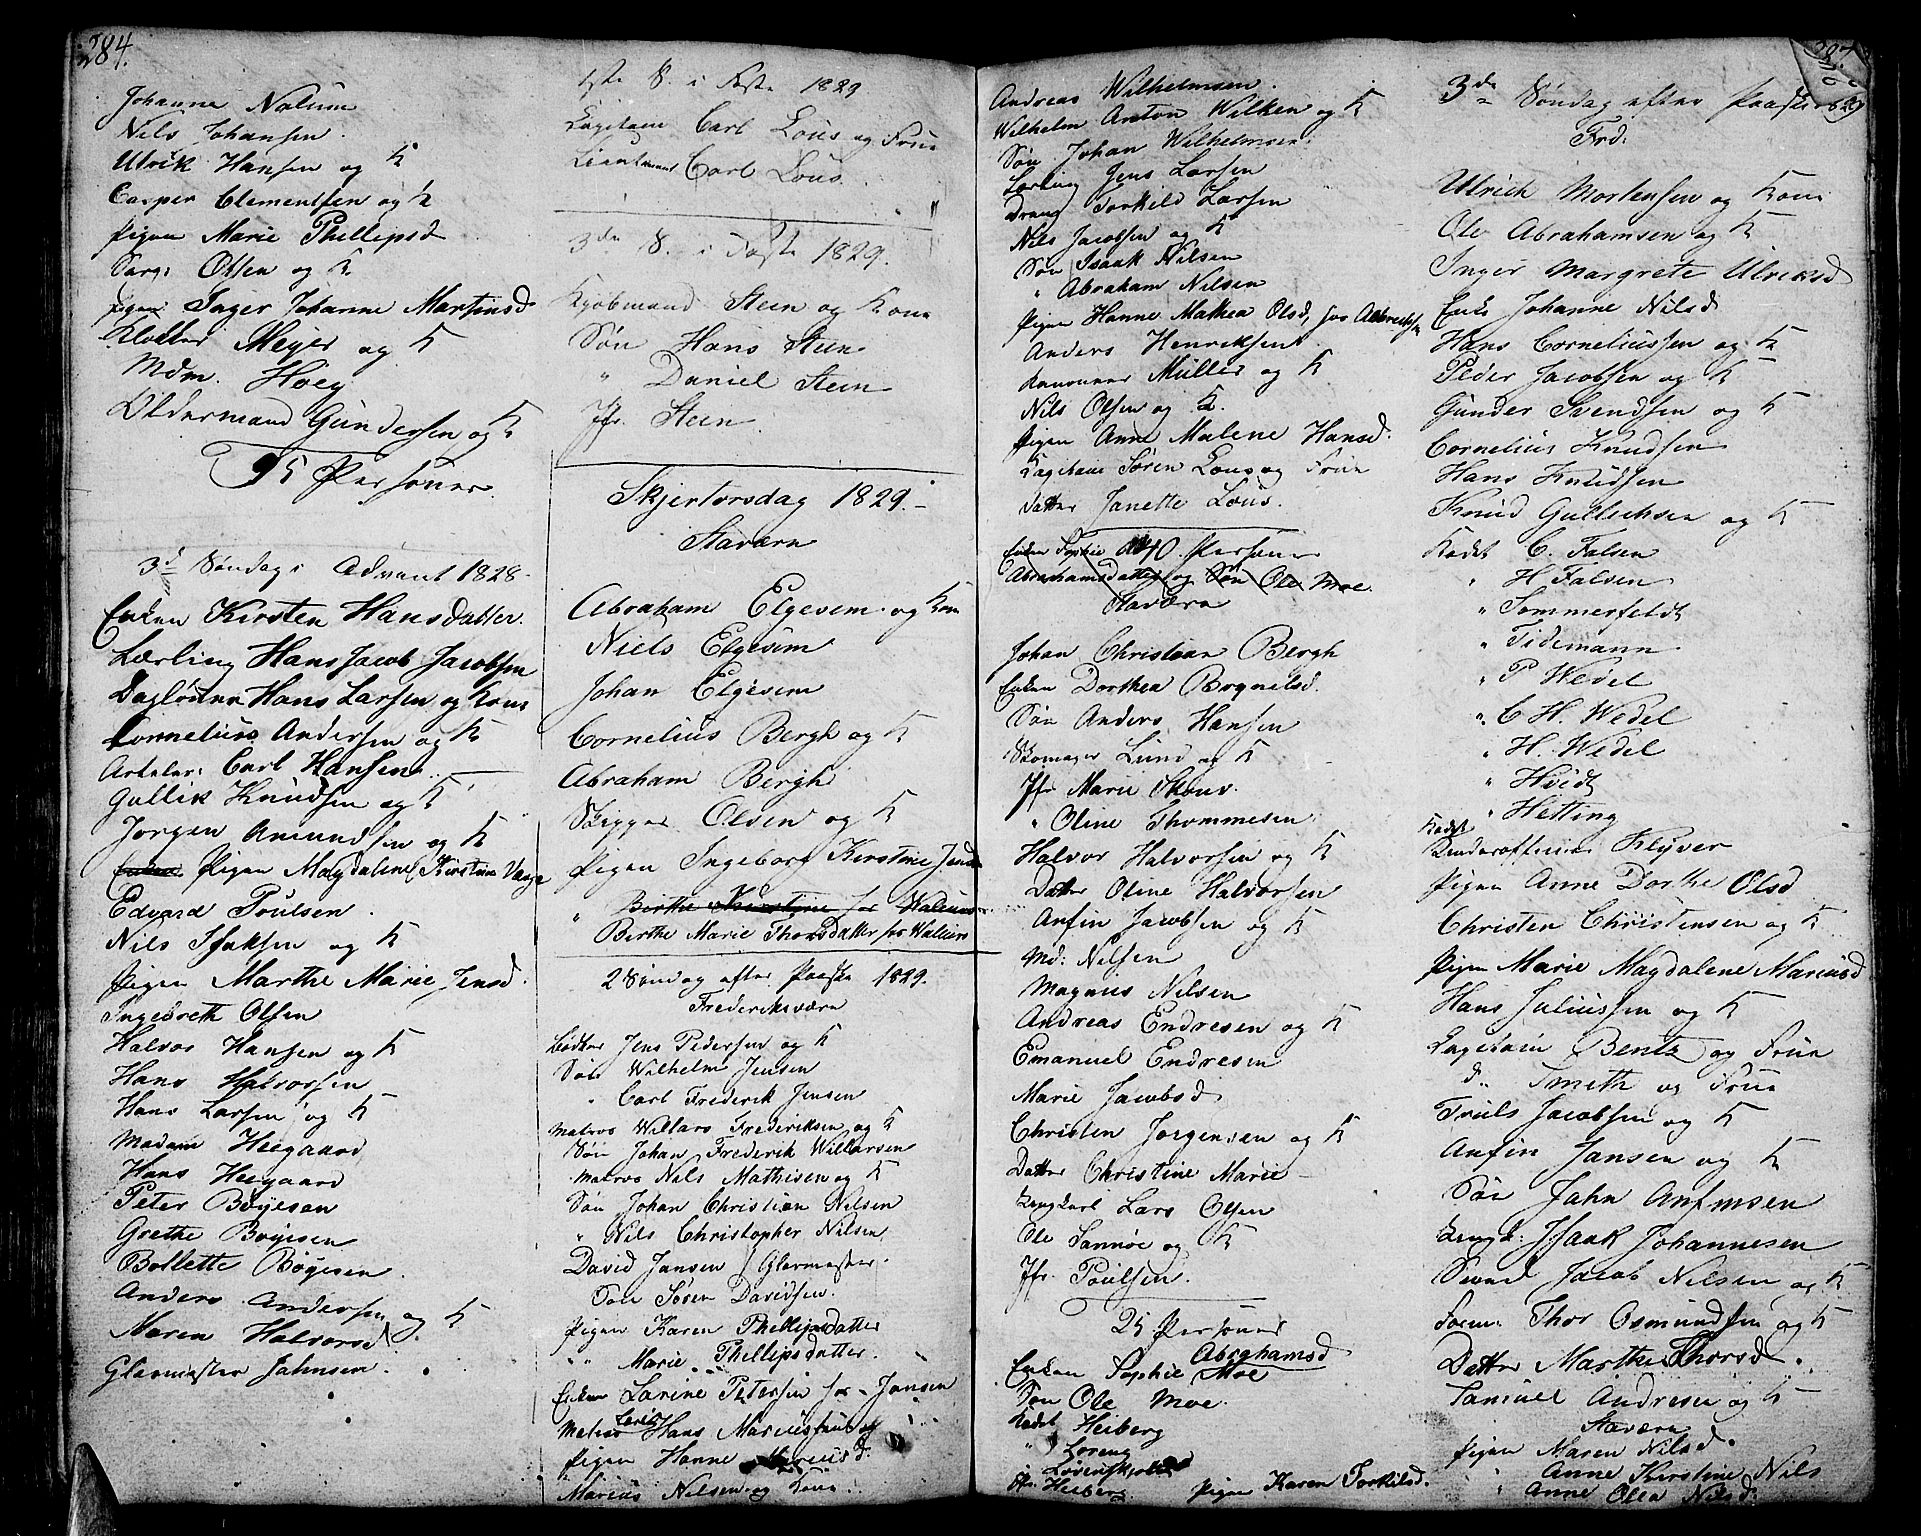 284.
Johanne Nalum
Nils Johansen.
Ulrik Hansen og K
Casper Clementsen og K
Pigen Marie Phillipsd
Sarg: Olsen og K
Pigen Inger Johanne Martinsd
Klokker Meyer og K
Mdm. Hoeg
Oldermand Gundersen og K
95 Personer.
3d Søndag i Advent 1828
Enken Kirsten Hansdatter.
Lærling Hans Jacob Jacobsen
Daglønner Hans Larsen og Kone
Cornelius Andersen og K
Carl Hansen.
Gullik Knudsen og K
Jørgen Amundsen og K
Enken Pigen Magdalene Kirstine
Edvard Poulsen.
Nils Isaksen og K
Pigen Marthe Marie Jensd.
Ingebreth Olsen
Halvor Hansen og K
Hans Halvorsen
Hans Larsen og K
Madam Heegaard
Hans Heegaard
Peter Bøyesen
Grethe Bøyesen
Bollette Bøyesen.
Anders Andersen og K
Maren Halvorsd.
Glarmester Jahnsen.
1ste S. i Faste 1829
Capitain Carl Lous og Frue
Lieutenant Carl Lous.
3de S. i Faste 1829.
Kjøbmand Steen og Kone
Søn Hans Steen
" Daniel Steen
Jfr. Steen
Skjertorsdag 1829.-
Staværn
Abraham Elgesem og Kone
Niels Elgesem
Johan Elgesem
Cornelius Bergh og K
Abraham Bergh
Skipper Olsen og K
Pigen Ingeborg Kirstine
" Birthe Kirstine for
" Birthe Marie Thorsdatter for
2 Søndag efter Paaske 1829.
Frederiksværn
Bødker Jens Pedersen og K
Søn Wilhelm Jensen
" Carl Frederik Jensen
Matros Willars Frederiksen og K
Søn Johan Frederik Willarsen
Matros Nils Mathisen og K
Søn Johan Christian Nilsen
" Nils Christopher Nilsen
David Jansen Glarmester.
Søn Søren Davidsen.
Pigen Karen Phillipsdatter
" " Marie Phillipsdatter.
Enken Larine Petersen for Jansen
Matros Hans Mariussen og
Pigen Hanne Mariusd.
Marius Nilsen og Kone.
Andreas Wilhelmsen.
Wilhelm Anton Wilken og K
Søn Johan Wilhelmsen.
Lærling Jens Larsen
Dreng Torkild Larsen
Nils Jacobsen og K
Søn Isaak Nilsen
" Abraham Nilsen
Pigen Hanne Mathea Olsd, for
Anders Henriksen
Kanoneer Müller og K
Nils Olsen og K.
Pigen Anne Malene Hansd.
Capitain Søren Lous og Frue
Datter Janette Lous.
40 Personer
Enken Sophie
Abrahamsdatter og Søn Ole Moe.
Staværn
Johan Christian Bergh
Enken Dorthea Brynelsd.
Søn Anders Hansen
Skomager Lund og K
Jfr Marie
" Oline Thommesen
Halvor Halvorsen og K
Datter Oline Halvorsen
Anfin Jacobsen og K
Md: Nilsen
Magnus Nilsen
Andreas Endresen og K
Emanuel Endresen
Marie Jacobsd.
Christen Jørgensen og K
Datter Christine Marie
Lars Olsen
Ole Sannøe og K
Jfr. Poulsen.
25 Personer
Enken Sophie Abrahamsd Moe
Søn Ole Moe.
Kadet Heiberg
" Loreng
" Løvenskjold
Heiberg
Pigen Karen Torkilsd.
3de Søndag efter Paaske 1829
Frd:
Ulrich Mortensen og Kone
Ole Abrahamsen og K
Inger Margrete Ulriksd
Enke Johanne Nilsd
Hans Corneliussen og K
Peder Jacobsen og K
Gunder Svendsen og K
Cornelius Knudsen
Hans Knudsen
Knud Gullichsen og K
Kadet C. Falsen
" H. Falsen
" Sommerfeldt
" Tidemann
" P Wedel
" C H. Wedel
" H. Wedel
" Hvidt
" Hetting
Kadet
Underofficier Klyver
Pigen Anne Dorthe Olsd
Christen Christensen og K
Pigen Marie Magdalene Mariusd
Hans Juliussen og K
Capitain Bentz og Frue
d.. Smith og Frue
Truls Jacobsen og K
Anfin Jansen og K
Søn Jahn Anfinsen
Isaak Johannesen
Svend Jacob Nilsen og K
Thor Osmundsen og K
Datter Marthe Thorsd.
Samuel Andresen og K
Staværn
Pigen Maren Nilsd.
" Anne Kirstine Nils
" Anne Olea Nilsd.